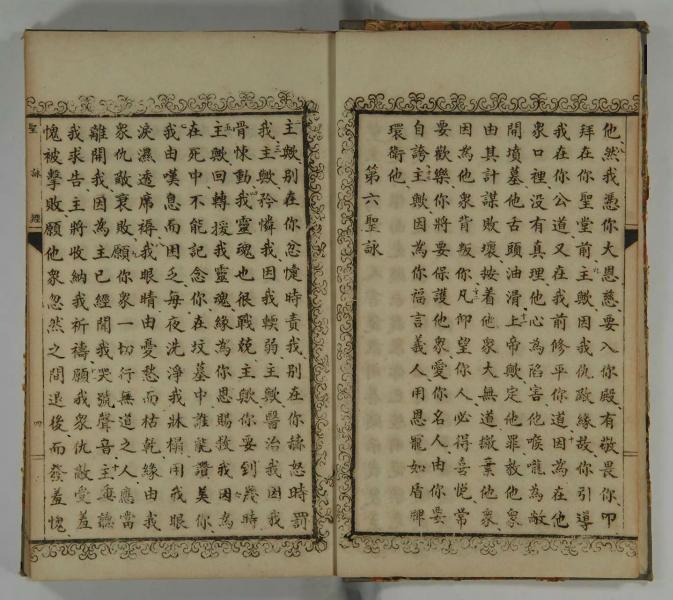 他然我悉你大恩慈要入你殿有敬畏你叩
拜在你聖堂前主歟因我仇敵緣故你引導
我在你公道又在我前修平你道因為在他
衆口裡没有真理他心為陷害他喉嚨為敞
開墳墓他舌頭油滑上帝歟定他罪救他衆
由其計謀敗壞按着他衆大無道撇棄他衆
因為他衆背叛你凡仰望你人必得喜悅常
要歡樂你將要保護他衆愛你名人由你要
自誇主歟因為你福言義人用恩寵如盾牌
環衛他
第六聖詠
主歟别在你忿懥時責我别在你赫怒時罰
我主歟矜憐我因我輭弱主歟醫治我因我
骨悚動我靈魂也很戰兢主歟你要到幾時
主歟回轉援我靈魂緣為你恩賜救我因為
在死中不能記念你在坟墓中誰能讚美你
我由嘆息而困乏每夜洗淨我牀榻用我眼
淚濕透席褥我眼睛由憂愁而枯乾緣由我
衆仇敵衰敗願你衆一切行無道之人應當
離開我因為主已經聞我哭號聲音主垂聽
我求告主將收納我祈禱願我衆仇敵受羞
愧被擊敗願他衆忽然之間退後而發羞愧
聖詠經
四